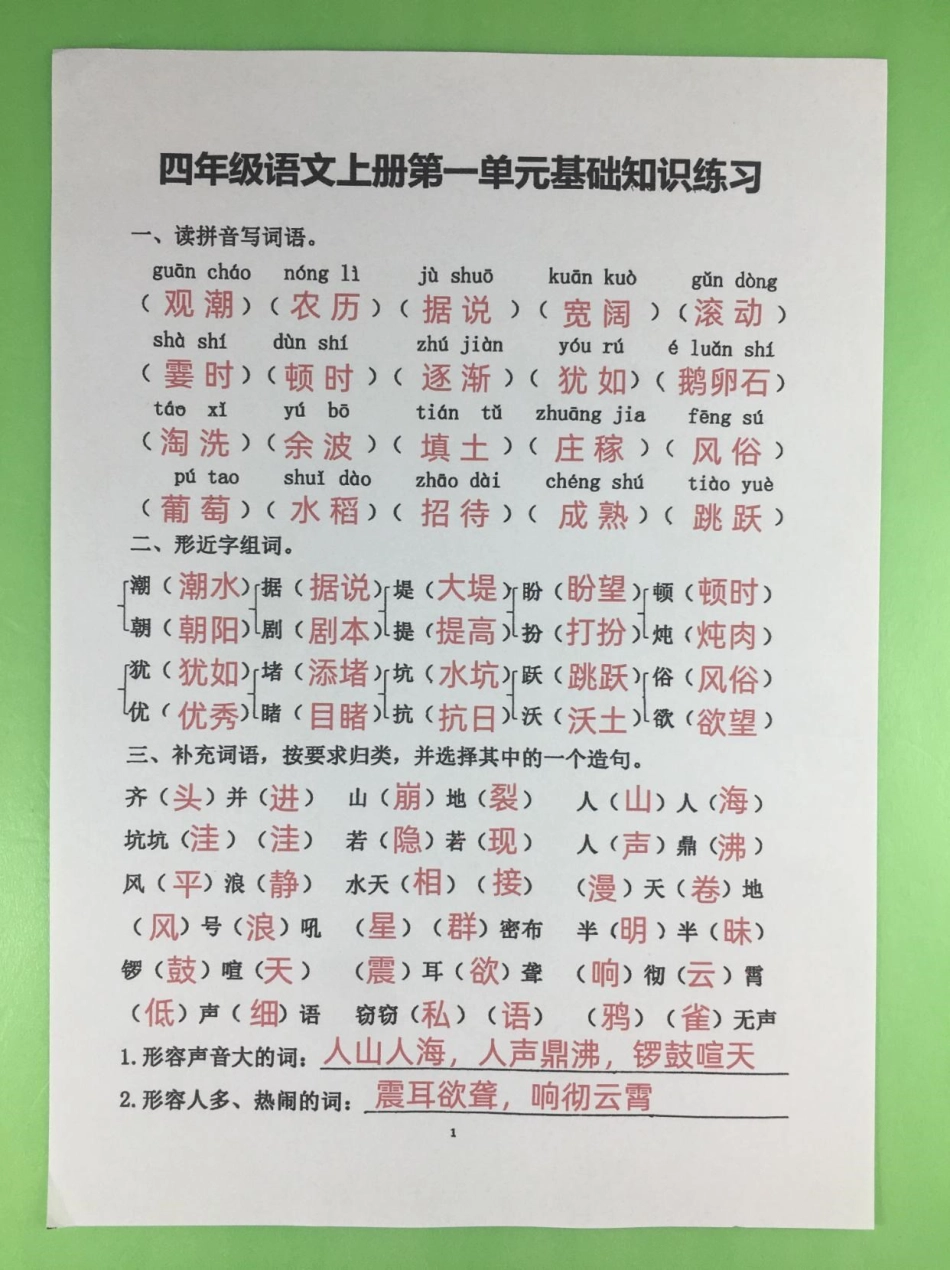 四年级语文上册第一单元基础知识练习
一、读拼音写词语。
guān cháo nóng lì jù shuō kuān kuò gǔn dòng
（观潮）（农历）（据说）（宽阔）（滚动）
shà shí dùn shí zhú jiàn yóu rú é luǎn shí
（霎时）（顿时）（逐渐）（犹如）（鹅卵石）
táo xǐ yú bō tián tǔ zhuāng jia fēng sú
（淘洗）（余波）（填土）（庄稼）（风俗）
pú tao shuǐ dào zhāo dài chéng shú tiào yuè
（葡萄）（水稻）（招待）（成熟）（跳跃）
二、形近字组词。
潮（潮水）据（据说）堤（大堤）盼（盼望）顿（顿时）
朝（朝阳）剧（剧本）提（提高）扮（打扮）炖（炖肉）
犹（犹如）堵（添堵）坑（水坑）跃（跳跃）俗（风俗）
优（优秀）睹（目睹）抗（抗日）沃（沃土）欲（欲望）
三、补充词语，按要求归类，并选择其中的一个造句。
齐（头）并（进） 山（崩）地（裂） 人（山）人（海）
坑坑（洼）（洼） 若（隐）若（现） 人（声）鼎（沸）
风（平）浪（静） 水天（相）（接） （漫）天（卷）地
（风）号（浪）吼 （星）（群）密布 半（明）半（昧）
锣（鼓）喧（天） （震）耳（欲）聋 （响）彻（云）霄
（低）声（细）语 窃窃（私）（语） （鸦）（雀）无声
1.形容声音大的词：人山人海，人声鼎沸，锣鼓喧天
2.形容人多、热闹的词：震耳欲聋，响彻云霄
1